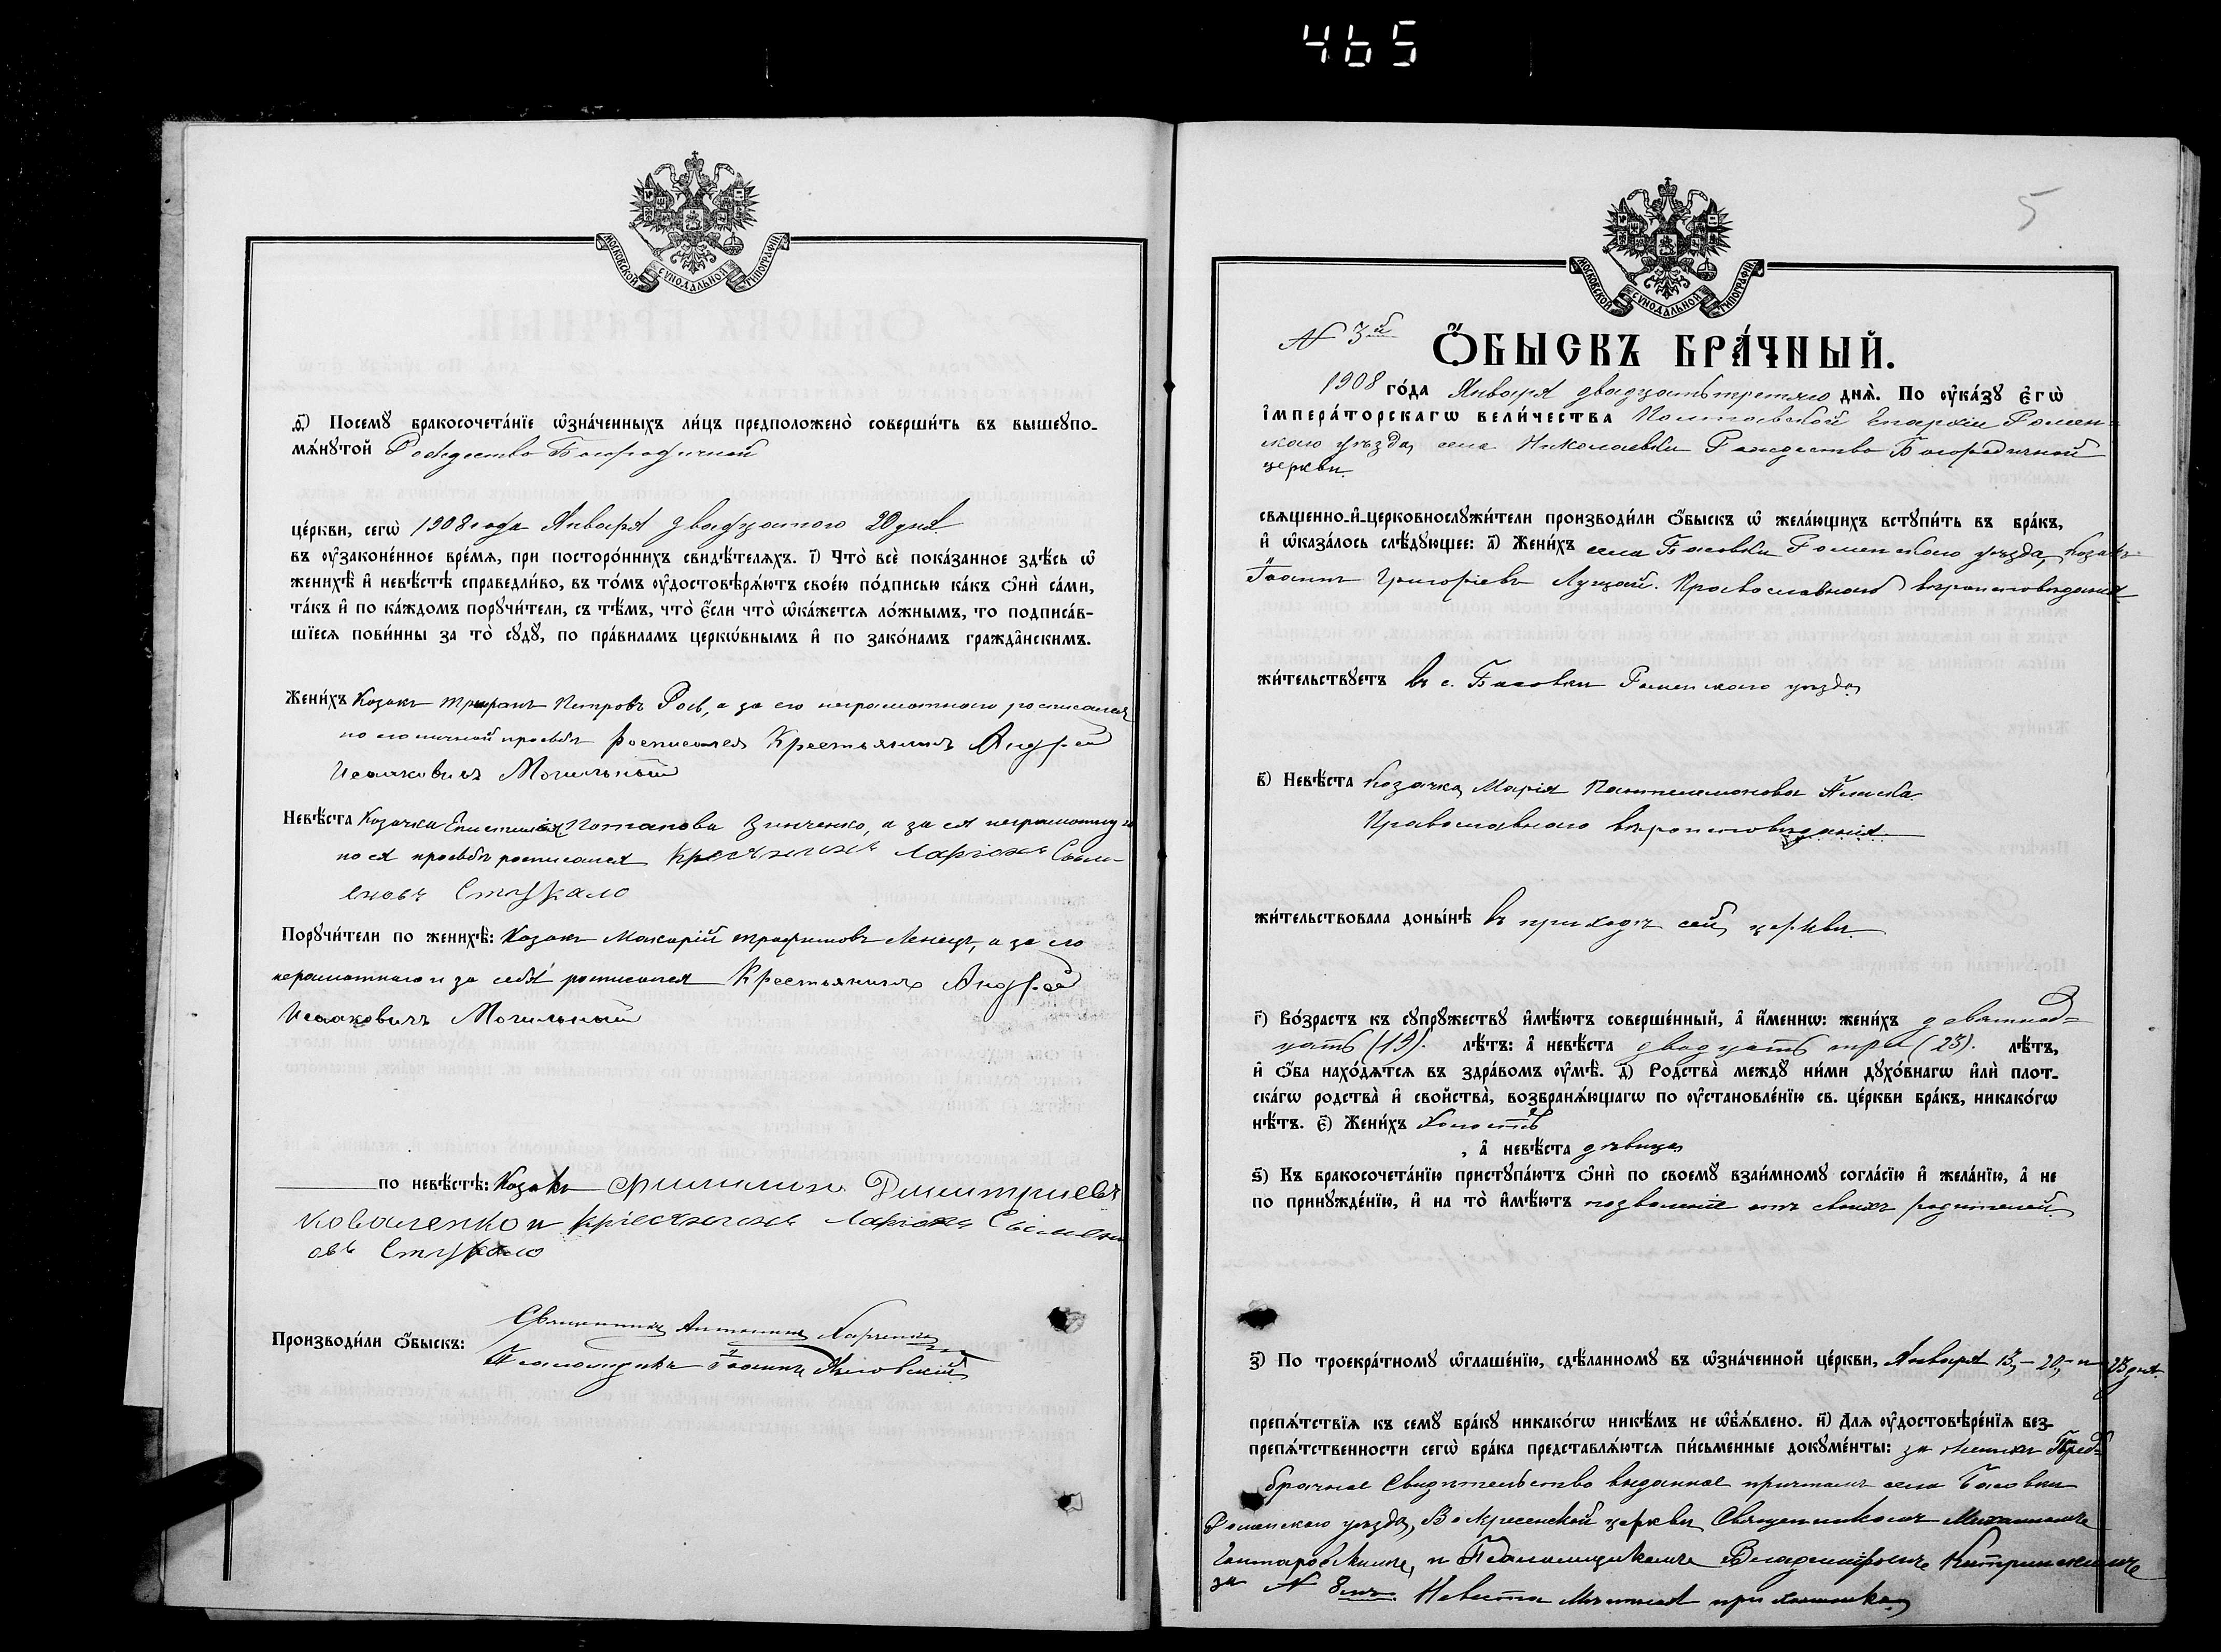 465
МОСКОВСКОЙ СѴНОДАЛЬНОЙ ТИПОГРАФІИ
ѳ҃) Посемꙋ бракосочета́нїе ѡ҆зна́ченныхъ ли́цъ предположено̀ соверши́ть въ вышеꙋпо-
мѧ́нꙋтой Рождество Богородичной
це́ркви, сегѡ̀ 1908 года Января двадцатого 20 дня
въ ᲂу҆законе́нное вре́мѧ, при посторо́ннихъ свидѣ́телѧхъ. і҃) Что̀ всѐ пока́занное здѣ́сь ѡ҆
женихѣ̀ и҆ невѣ́стѣ справедли́во, въ то́мъ ᲂу҆достовѣрѧ́ютъ свое́ю по́дписью ка́къ ѻ҆нѝ са́ми,
та́къ и҆ по ка́ждомъ порꙋчи́тели, съ тѣ́мъ, что̀ є҆́сли что̀ ѡ҆ка́жетсѧ ло́жнымъ, то подписа́в-
шїесѧ пови́нны за то̀ сꙋдꙋ̀, по пра́виламъ церко́внымъ и҆ по зако́намъ гражда̂нскимъ.
Жени́хъ Козакъ Петровъ а за его неграмотного росписался
по его личной просьбѣ росписался Крестьянинъ Андрей
Исааковичъ Могильный
Невѣ́ста Козачка Епистимія Потапова Зинченко, а за ея неграмотную
по ея просьбѣ росписался Кресянинъ Ларіонъ Сыми-
еновъ Стукало
Порꙋчи́тели по женихѣ̀: Козакъ Макарій Трофимовъ Ленецъ, а за его
неграмотного и за себя росписался Крестьянинъ Андрей
Исааковичъ Могильный
по невѣ́стѣ: Козакъ Филимонъ Димитріевъ
Коваленко и Крiесянинъ Ларіонъ Сымен
овъ Стукало
Производи́ли ѻ҆́быскъ: Священникъ Антоній
Псаломщикъ Іоаннъ
5
МОСКОВСКОЙ СѴНОДАЛЬНОЙ ТИПОГРАФІИ
N 3й
Ѻ҆́БЫСКЪ БРА́ЧНЫЙ.
1908 го́да Января двадцать третяго днѧ̀. По ᲂу҆ка́зꙋ є҆гѡ̀
і҆мпера́торскагѡ вели́чества Полтавской Епархіи Ромен-
скаго уѣзда, села Николаевки Рождество Богородичной
церкви
свѧщенно-и҆-церковнослꙋжи́тели производи́ли ѻ҆́быскъ ѡ҆ жела́ющихъ встꙋпи́ть въ бра́къ,
и҆ ѡ҆каза́лось слѣ́дꙋющее: а҃) Жени́хъ села Басовки Роменскаго уѣзда, Козакъ
Іоаннъ Григоріевъ Луцай. Православнаго вѣроисповѣданія
жи́тельствꙋетъ въ с. Басовки Роменскаго уѣзда
в҃) Невѣ́ста Козачка Марія Пантелеимонова
Православнаго вѣроисповѣданія
жи́тельствовала доны́нѣ въ приходѣ сей церкви
г҃) Во́зрастъ къ сꙋпрꙋ́жествꙋ и҆мѣ́ютъ соверше́нный, а҆ и҆́менно: жени́хъ девятнад-
цать (19). лѣ́тъ: а҆ невѣ́ста двадцать три (23). лѣ́тъ,
и҆ ѻ҆́ба нахо́дѧтсѧ въ здра́вомъ ᲂу҆мѣ̀. д҃) Родства̀ междꙋ ни́ми дꙋхо́внагѡ и҆лѝ плот-
ска́гѡ родства̀ и҆ свойства̀, возбранѧ́ющагѡ по ᲂу҆становле́нїю св. це́ркви бра́къ, никако́гѡ
нѣ́тъ. є҃) Жени́хъ холостъ
, а҆ невѣ́ста дѣвица
ѕ҃) Къ бракосочета́нїю пристꙋпа́ютъ ѻ҆нѝ по своемꙋ̀ взаи́мномꙋ согла́сїю и҆ жела́нїю, а҆ не
по принꙋжде́нїю, и҆ на то̀ и҆мѣ́ютъ позволеніе отъ своихъ родителей.
з҃) По троекра́тномꙋ ѡ҆глаше́нїю, сдѣ́ланномꙋ въ ѡ҆зна́ченной це́ркви, Января 13,– 20,– и 23 дня.
препѧ́тствїѧ къ семꙋ̀ бра́кꙋ никако́гѡ никѣ́мъ не ѡ҆б̾ѧ́влено. и҃) Длѧ ᲂу҆достовѣре́нїѧ без-
препѧ́тственности сегѡ̀ бра́ка представлѧ́ютсѧ пи́сьменные докꙋме́нты: за жениха Пред-
брачное Свидѣтельство выданное причтомъ села Басовки
Роменскаго уѣзда, Воскресенской церкви Священникомъ Михаиломъ
и Псаломщикомъ Владиміромъ
за N 8мъ. Невеста